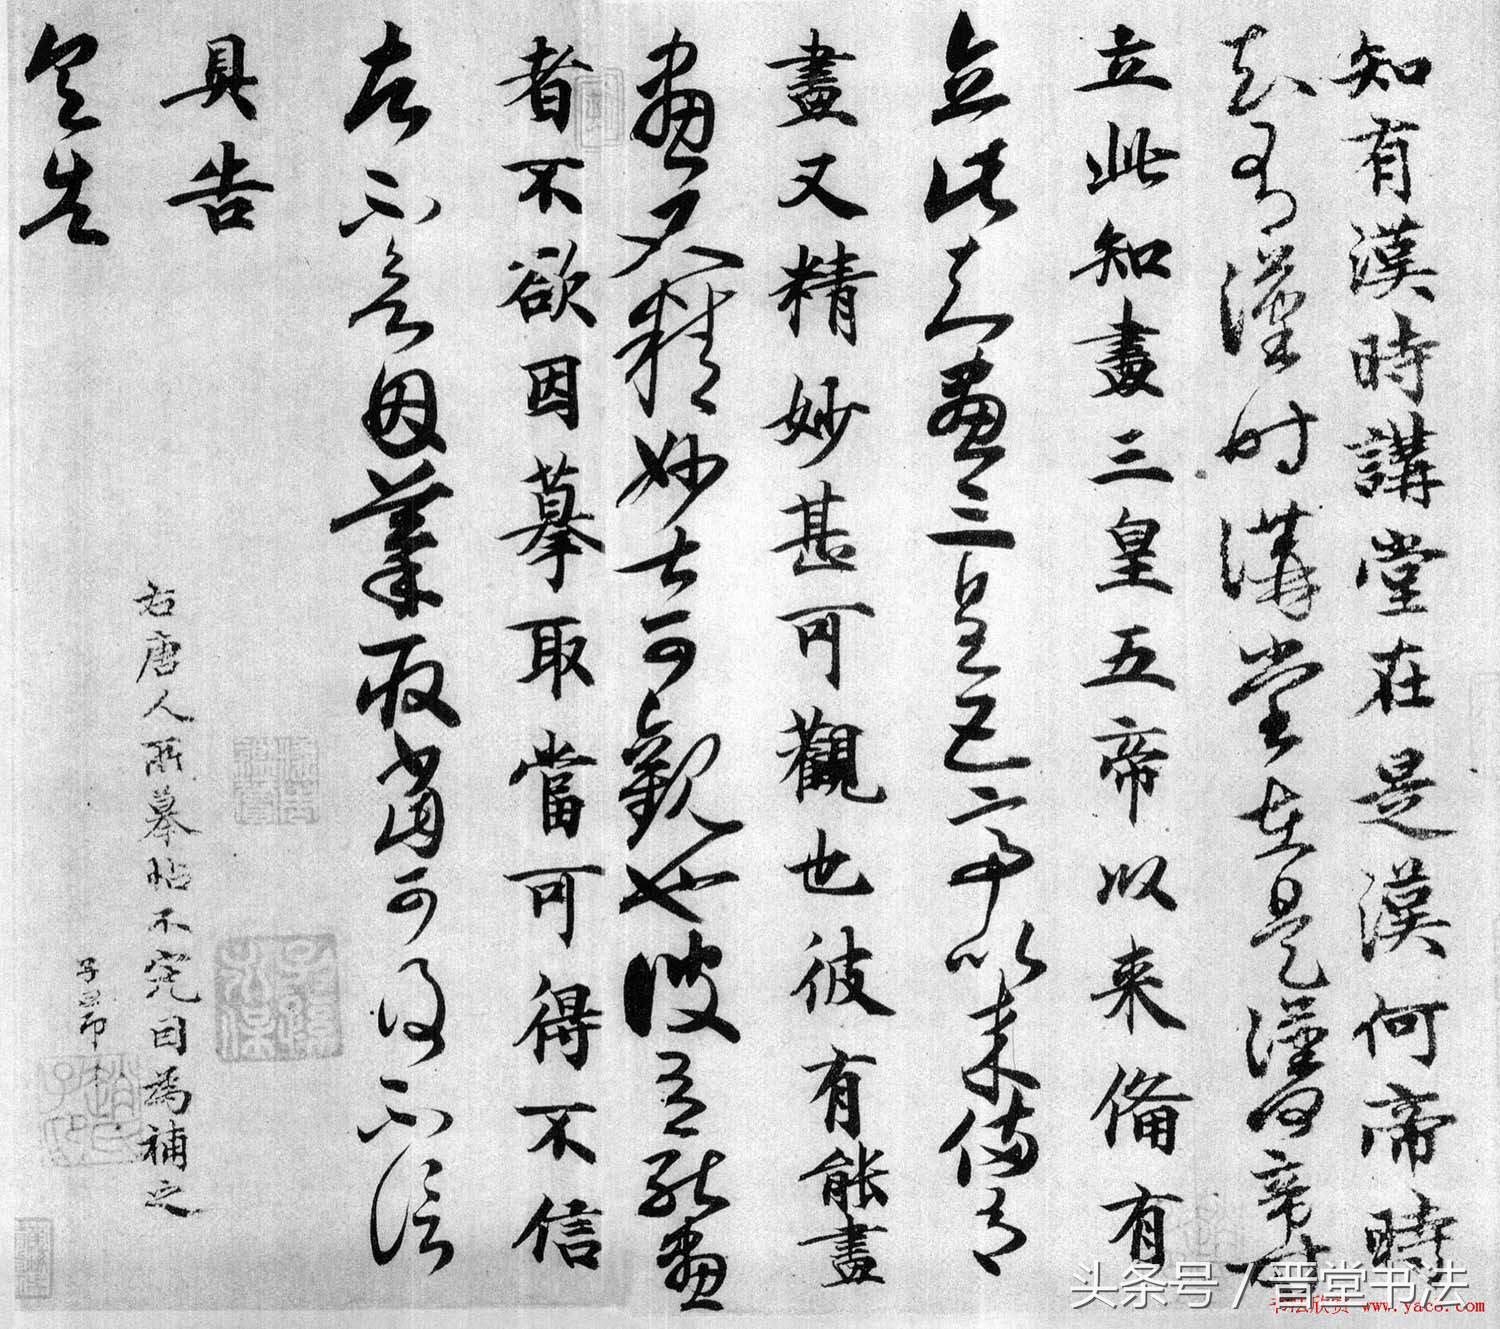 知有漢時講堂在是漢何帝時
知有漢時講堂在是漢何帝時
立此知畫三皇五帝以来備有
立此知畫三皇五帝以来備有
畫又精妙甚可觀也彼有能畫
畫又精妙甚可觀也彼有能畫
者不欲因摹取當可得不信
者不欲因摹取當可得不信
具告
具告
右唐人所摹帖不完因為補之
子昂
头条号 / 晋堂书法
书法欣赏 www.yac8.com